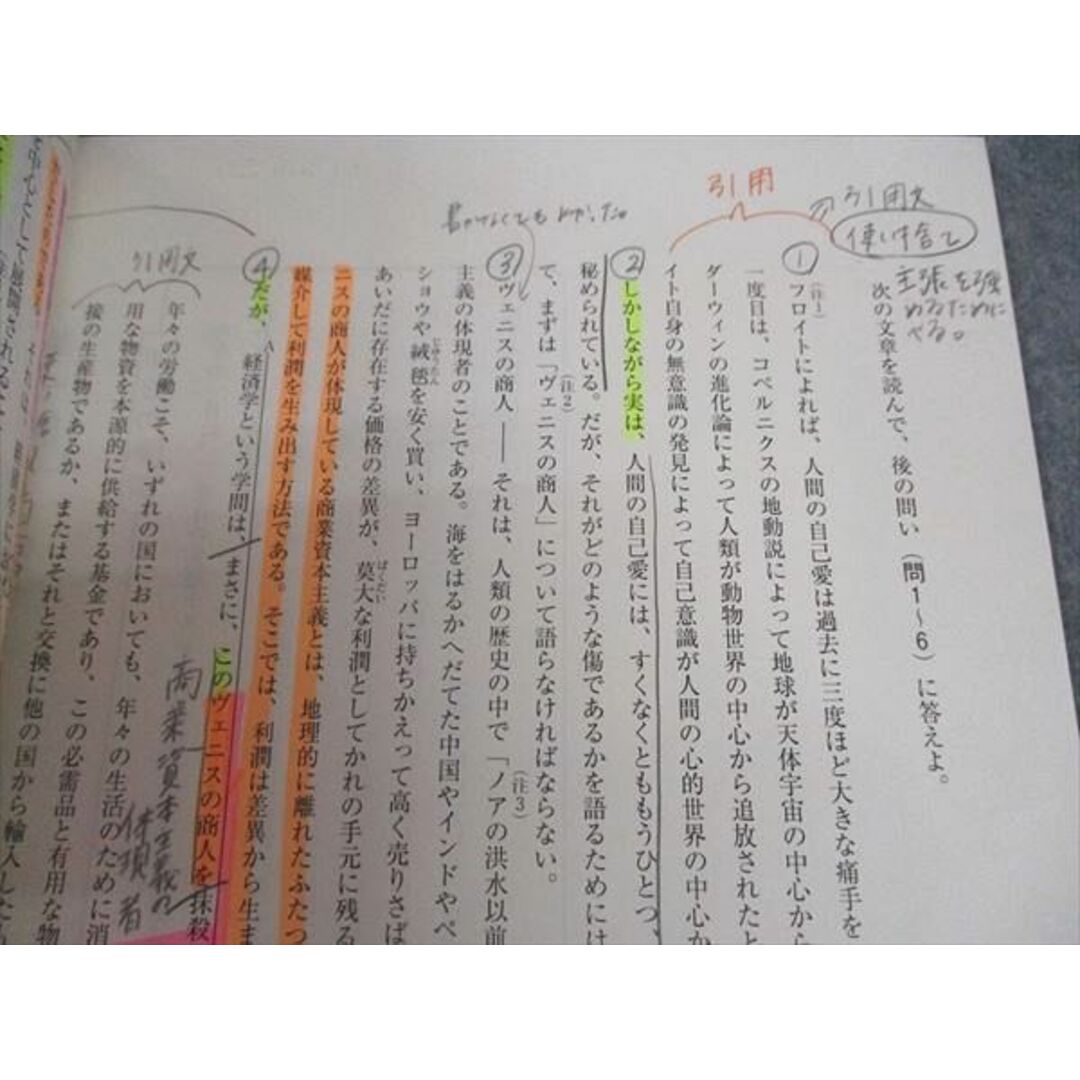 引用
引用文
使い捨て
主張を強
めるために
次の文章を読んで、後の問い（問1〜6）に答えよ。
①
（注1）
フロイトによれば、人間の自己愛は過去に三度ほど大きな痛手を
一度目は、コペルニクスの地動説によって地球が天体宇宙の中心から
ダーウィンの進化論によって人類が動物世界の中心から追放されたと
イト自身の無意識の発見によって自己意識が人間の心的世界の中心か
②
しかしながら実は、人間の自己愛には、すくなくとももうひとつ、
秘められている。だが、それがどのような傷であるかを語るためには
（注2）
て、まずは「ヴェニスの商人」について語らなければならない。
（注3）
③
ヴェニスの商人――それは、人類の歴史の中で「ノアの洪水以前
主義の体現者のことである。海をはるかへだてた中国やインドやペ
じゅうたん
ショウや絨毯を安く買い、ヨーロッパに持ちかえって高く売りさば
ばくだい
あいだに存在する価格の差異が、莫大な利潤としてかれの手元に残る
ニスの商人が体現している商業資本主義とは、地理的に離れたふたつ
媒介して利潤を生み出す方法である。そこでは、利潤は差異から生ま
④
だが、
A
経済学という学問は、まさに、このヴェニスの商人を抹殺
商業資本主義の
体現者
引用文
年々の労働こそ、いずれの国においても、年々の生活のために消
用な物資を本源的に供給する基金であり、この必需品と有用な物
接の生産物であるか、またはそれと交換に他の国から輸入した